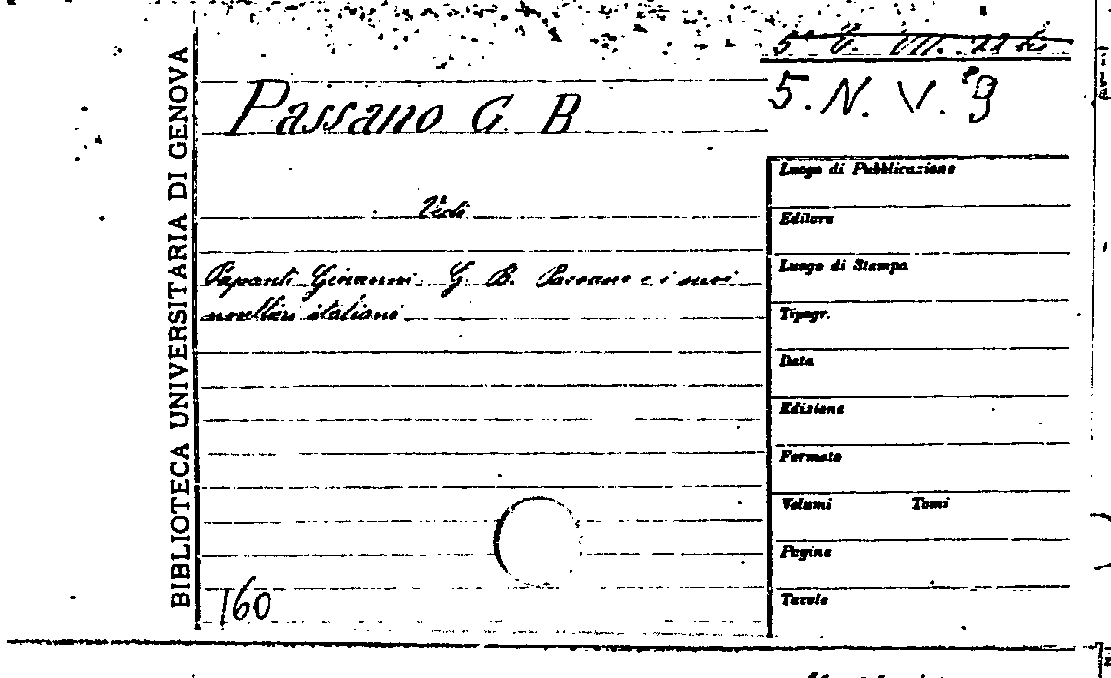 BIBLIOTECA UNIVERSITARIA DI GENOVA
5. N. V. 9
Passano G. B.
Vedi
Papanti Giovanni. G. B. Passano e i suoi
novellieri italiani.
160
Luogo di Pubblicazione
Editore
Luogo di Stampa
Tipogr.
Data
Edizione
Formato
Volumi Tomi
Pagine
Tavole